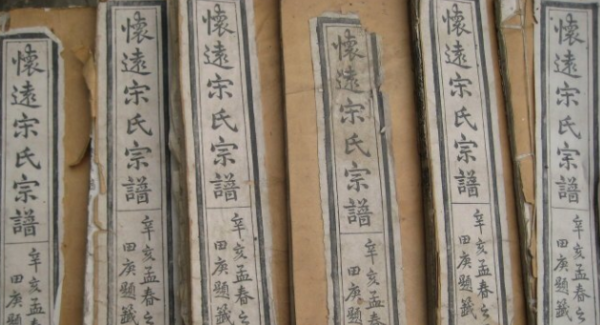 懷遠宗氏宗譜
辛亥孟春之
田庚題籤
懷遠宗氏宗譜
辛亥孟春之
田庚題籤
懷遠宗氏宗譜
辛亥孟春之
田庚題籤
懷遠宗氏宗譜
辛亥孟春之
田庚題籤
懷遠宗氏宗譜
辛亥孟春之
田庚題籤
懷遠宗氏宗譜
辛亥孟春之
田庚題籤